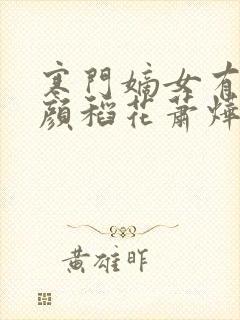 寒門嫡女有
顏稻花蕭燁
黃雄昨